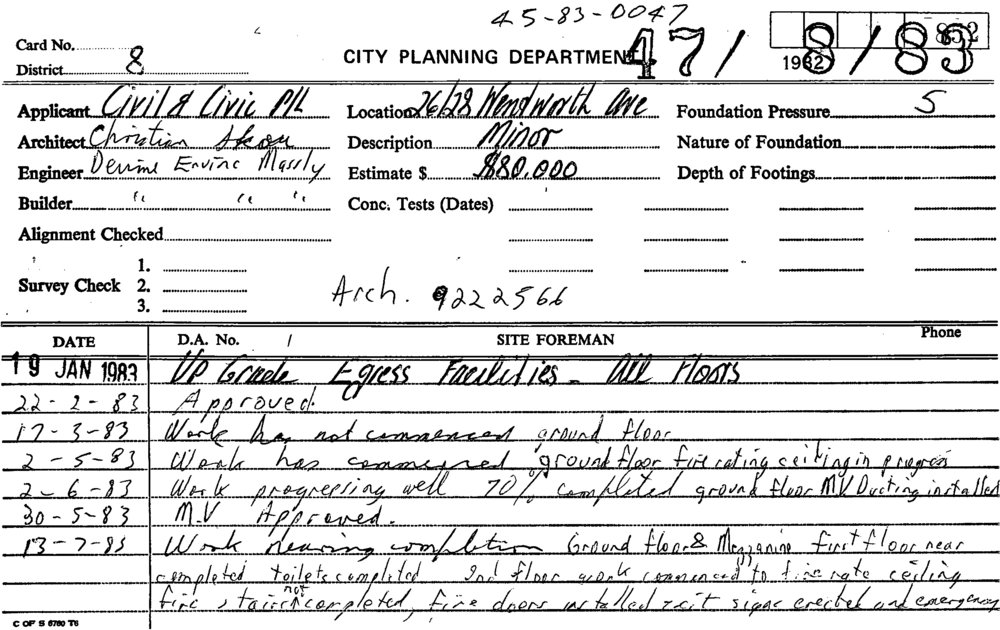 45-83-0047
Card No.
District 8
CITY PLANNING DEPARTMENT
47/8/83
1982
Applicant Civil & Civic P/L Location 26/28 Wentworth Ave Foundation Pressure S
Architect Christian Description Minor Nature of Foundation
Engineer Devine Erving Massly Estimate $ $80,000 Depth of Footings
Builder " " " Conc. Tests (Dates)
Alignment Checked
1.
Survey Check 2.
3.
Arch. 9222566
DATE D.A. No. SITE FOREMAN Phone
19 JAN 1983 Up Grade Egress Facilities - All Floors
22-2-83 Approved.
17-3-83 Work has not commenced ground floor
2-5-83 Work has commenced ground floor fire rating ceiling in progress
2-6-83 Work progressing well 70% completed ground floor MV Ducting installed
30-5-83 M.V Approved.
13-7-83 Work nearing completion Ground floor & Mezzanine first floor near
completed toilets completed 2nd floor work commenced to fire rate ceiling
fire stairs not completed, fire doors installed exit signs erected and emergency
C OF S 6760 T6